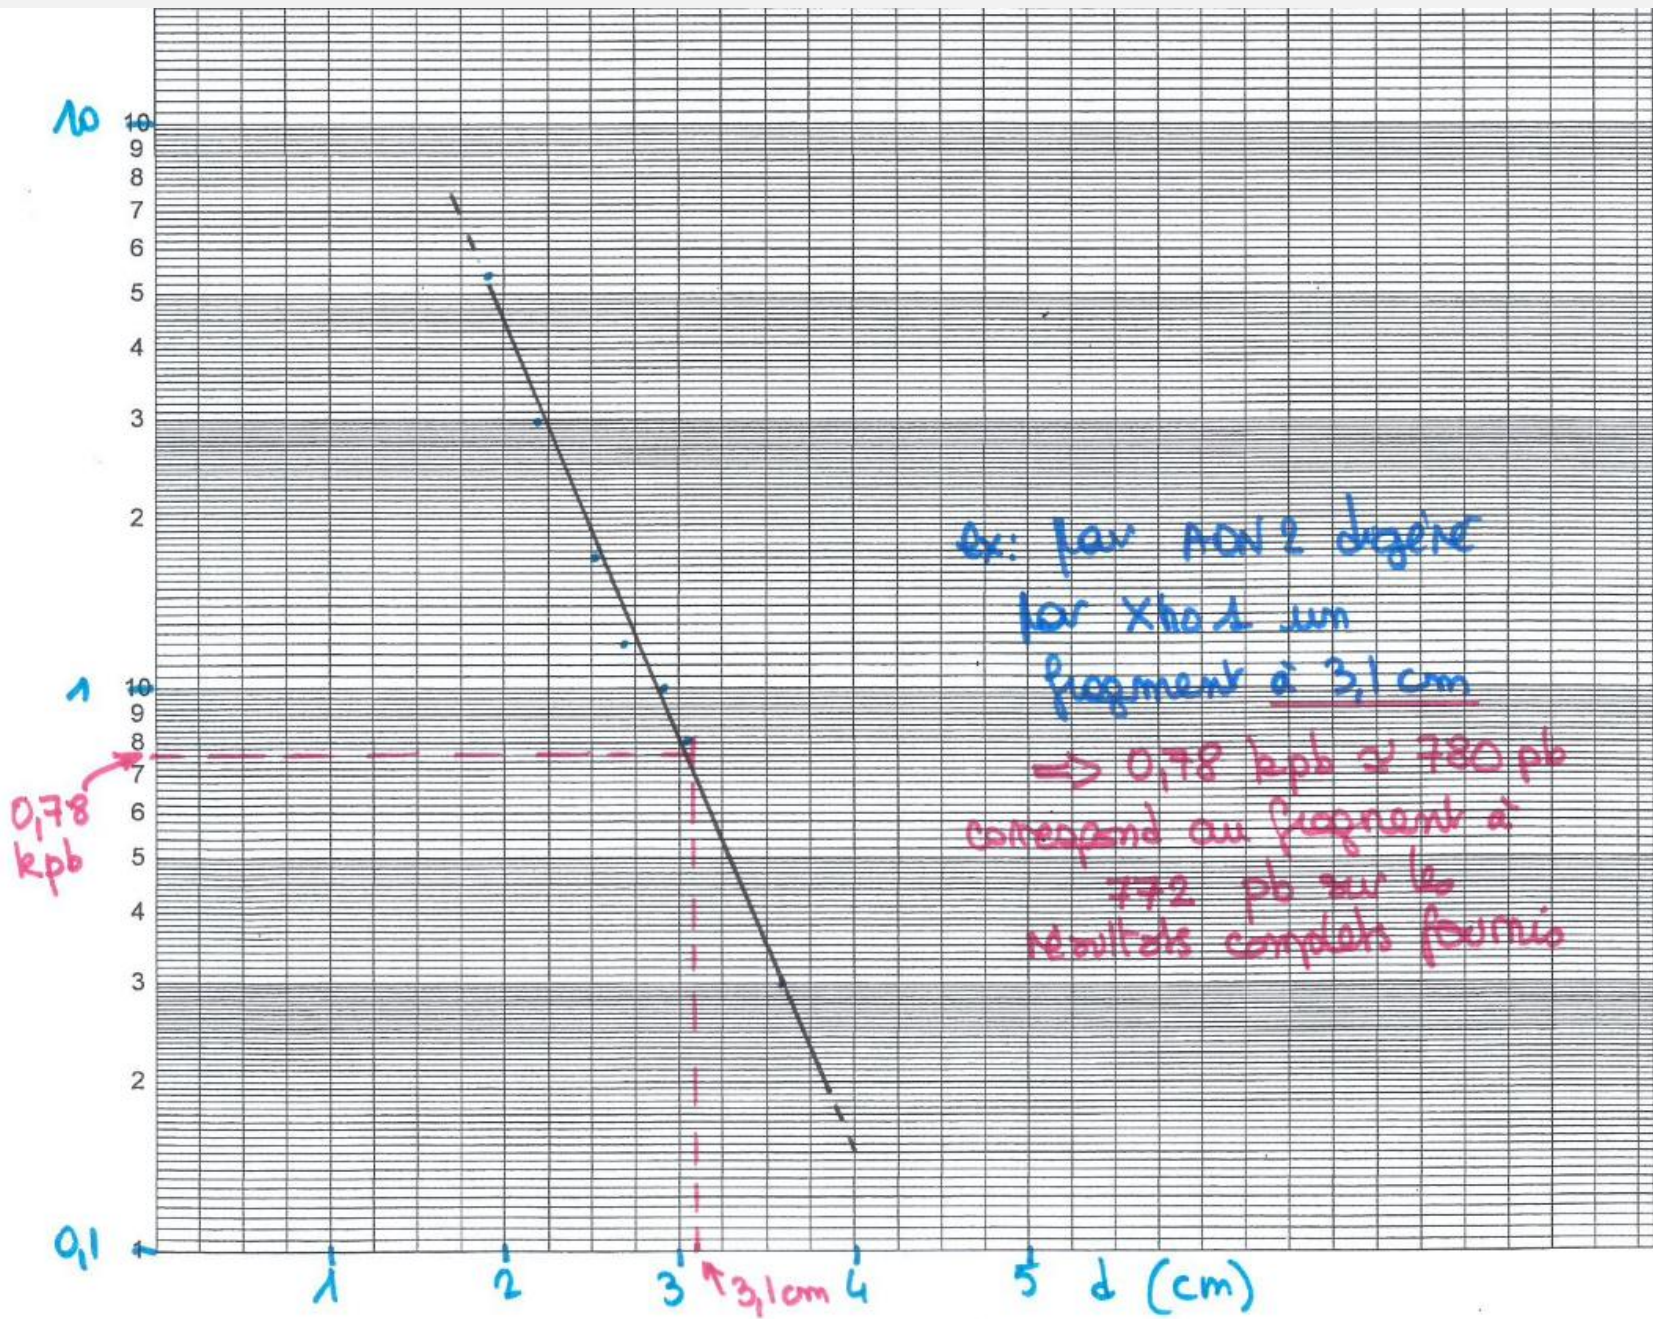 10 10
9
8
7
6
5
4
3
2
1 10
9
8
7
6
5
4
3
2
0,1 1
0,78
kpb
ex: par ADN 2 digéré
par Xho 1 un
fragment à 3,1 cm
⇒ 0,78 kpb ≈ 780 pb
correspond au fragment à
772 pb sur les
résultats complets fournis
1 2 3 4 5 d (cm)
3,1 cm